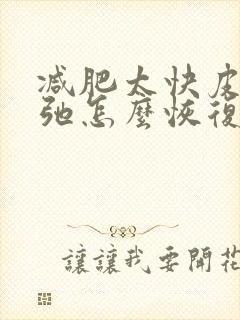 减肥太快皮
弛怎麼恢復
讓讓我要開花